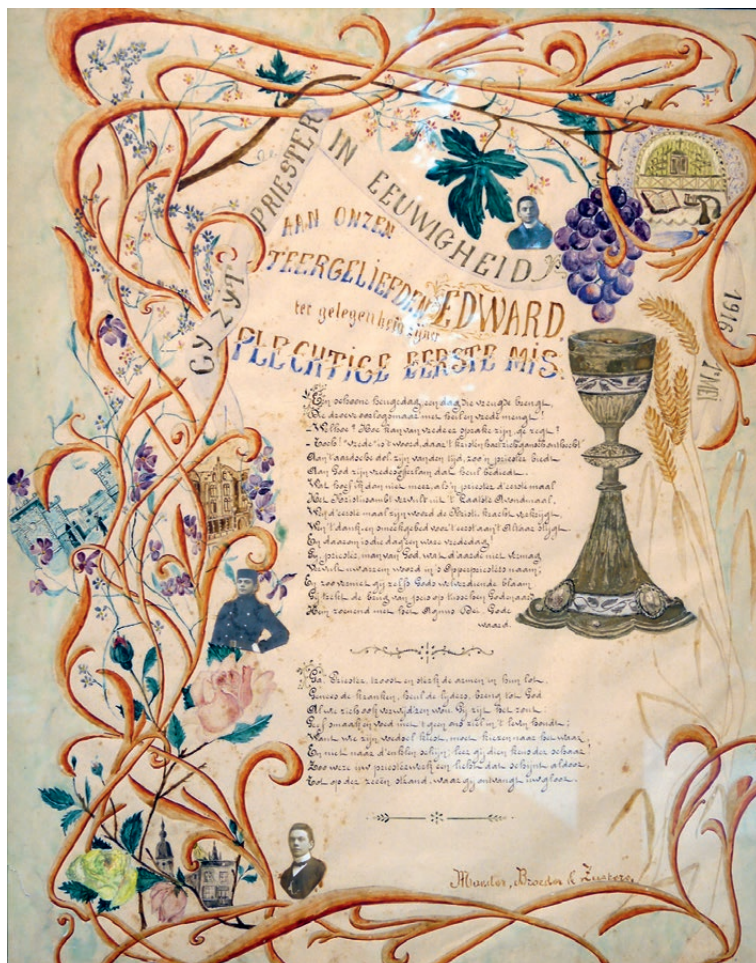 GY ZYT PRIESTER IN EEUWIGHEID
AAN ONZEN
TEERGELIEFDEN EDWARD
ter gelegenheid zijner
PLECHTIGE EERSTE MIS.
1 MEI 1916
Een schoone heugedag, een dag die vreugde brengt,
De droeve oorlogsmaar met heil en vrede mengt!
Welhoe? Hoe kan van vrede er sprake zijn, ge zegt?
Toch! "vrede" is 't woord, daar 't kristen hart zich gansch aan hecht
Aan 't aardsche dol zijn van den tijd, zoo 'n priester biedt
Aan God zijn vredeofferlam dat heul bediedt.
Wat hoef ik dan niet meer, als 'n priester d'eerste maal
Het Kristisambt vervult uit 't Laatste Avondmaal,
Wijl d'eerste maal zijn woord de Kristi kracht verkrijgt
Wijl 't dank, en smeekgebed voor 't eerst aan 't Altaar stijgt
En daarom is die dag een ware vrededag!
Gij, priester, man van God, wat d'aarde niet vermag
Vervult uw arm woord in 's Opperpriesters naam;
En zoo vermet gij zelfs Gods welverdiende blaam
Gij trekt de brug van pais op tusschen God en aard
Hem zoenend met het Agnus Dei, Gode
waard.
Ga, Priester, troost en sterk de armen in hun lot.
Genees de kranken, heul de lijders, breng tot God
Al wie zich ook verwijdren wou. Gij zijt het zout
Geef smaak en voed met 't geen ons ziel in 't leven houdt;
Want wie zijn voedsel kiest, moet kiezen naar het waar
En niet naar d'enklen schijn; leer gij dien keus der schaar
Zoo weze uw priesterwerk een licht dat schijnt aldoor,
Tot op der zeeën strand, waar gij ontvangt uw gloor.
Moeder, Broeders & Zusters.